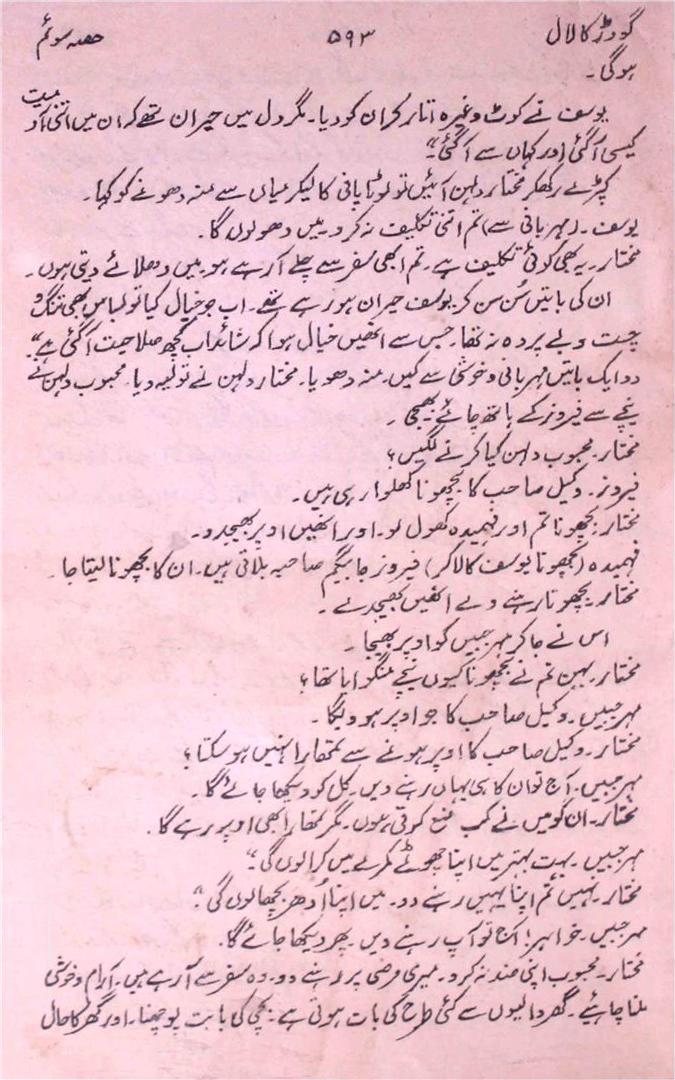 گودڑ کا لال ۵۹۳ حصہ سوئم
ہوگی۔
یوسف نے کوٹ وغیرہ اتار کر ان کو دیا۔ مگر دل میں حیران تھے کہ ان میں اتنی آدمیت
کیسی آگئی اور کہاں سے آگئی؟"
کپڑے رکھکر مختار دلہن آئیں تو لوٹا پانی کا لیکر میاں سے منہ دھونے کو کہا۔
یوسف۔ (مہربانی سے) تم اتنی تکلیف نہ کرو۔ میں دھولوں گا۔
مختار۔ یہ بھی کوئی تکلیف ہے۔ تم ابھی سفر سے چلے آرہے ہو۔ میں دھلائے دیتی ہوں۔
ان کی باتیں سُن سن کر یوسف حیران ہورہے تھے۔ اب جو خیال کیا تو لباس بھی تنگ و
چست و بے پردہ نہ تھا۔ جس سے انھیں خیال ہوا کہ شائد اب کچھ صلاحیت آگئی ہے"
دو ایک باتیں مہربانی و خوشی سے کیں۔ منہ دھویا۔ مختار دلہن نے تولیہ دیا۔ محبوب دلہن نے
نیچے سے فیروز کے ہاتھ چائے بھیجی۔
مختار۔ محبوب دلہن کیا کرنے لگیں؟
فیروز۔ وکیل صاحب کا بچھونا کھلوا رہی ہیں۔
مختار۔ بچھونا تم اور فہمیدہ کھول لو۔ اور انھیں اوپر بھیجدو۔
فہمیدہ (بچھونا یوسف کا لاکر) فیروز جا بیگم صاحبہ بلاتی ہیں۔ ان کا بچھونا لیتا جا۔
مختار۔ بچھونا رہنے دے انھیں بھیجدے۔
اس نے جاکر مہرجبیں کو اوپر بھیجا۔
مختار۔ بہن تم نے بچھونا کیوں نیچے منگوایا تھا؟
مہرجبیں۔ وکیل صاحب کا جو اوپر ہوویگا۔
مختار۔ وکیل صاحب کا اوپر ہونے سے تمھارا نہیں ہوسکتا؟
مہرجبیں۔ آج تو ان کا ہی یہاں رہنے دیں۔ کل کو دیکھا جائے گا۔
مختار۔ ان کو میں نے کب منع کرتی ہوں۔ مگر تمھارا بھی اوپر رہے گا۔
مہرجبیں۔ بہت بہتر میں اپنا چھوٹے کمرے میں کرالوں گی"
مختار۔ نہیں تم اپنا یہیں رہنے دو۔ میں اپنا اُدھر بچھالوں گی"
مہرجبیں۔ خواہر! آج تو آپ رہنے دیں۔ پھر دیکھا جائے گا۔
مختار۔ محبوب اپنی ضد نہ کرو۔ میری مرضی پر رہنے دو۔ وہ سفر سے آرہے ہیں۔ آرام و خوشی
ملنا چاہیئے۔ گھر والیوں سے کئی طرح کی بات ہوتی ہے۔ بچی کی بابت پوچھنا۔ اور گھر کا حال